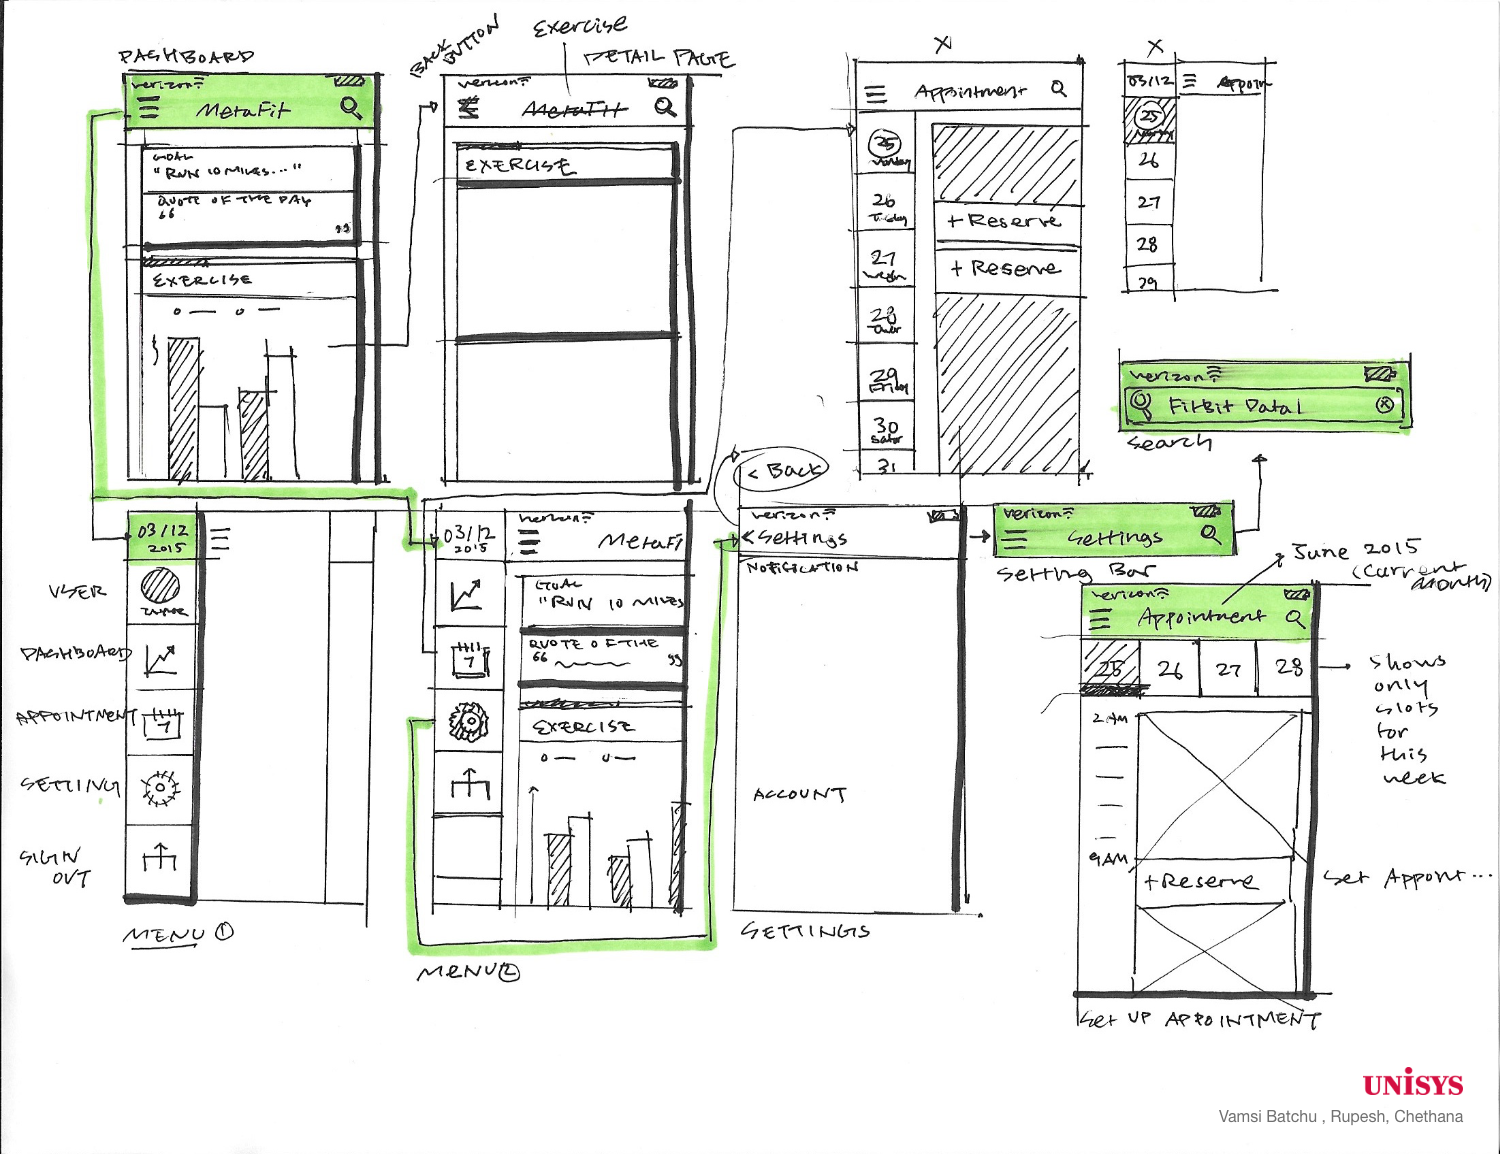 DASHBOARD
verizon
MetaFit
GOAL
"RUN 10 MILES..."
QUOTE OF THE DAY
“
”
EXERCISE
BACK
BUTTON
Exercise
DETAIL PAGE
verizon
MetaFit
EXERCISE
X
Appointment
25
Monday
26
27
28
29
Friday
30
31
+ Reserve
+ Reserve
X
03/12
Appoin
25
26
27
28
29
verizon
FitBit Data1
search
03/12
2015
USER
DASHBOARD
APPOINTMENT
7
SETTING
SIGN
OUT
MENU 1
03/12
2015
7
verizon
MetaFi
GOAL
"RUN 10 MILES
QUOTE OF THE
“ ”
EXERCISE
MENU 2
< Back
verizon
< Settings
NOTIFICATION
ACCOUNT
SETTINGS
verizon
Settings
Setting Bar
June 2015
(Current
Month)
verizon
Appointment
25 26 27 28
Shows
only
slots
for
this
week
2 AM
9AM
+Reserve
Set Appoint...
Set UP APPOINTMENT
UNISYS
Vamsi Batchu , Rupesh, Chethana